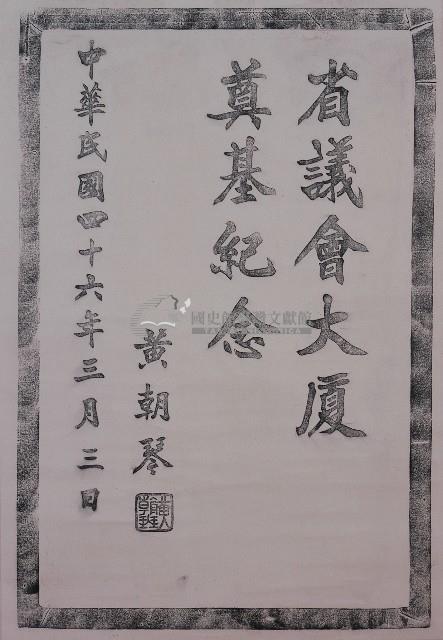 省議會大厦
奠基紀念
黃朝琴
中華民國四十六年三月三日
國史館臺灣文獻館